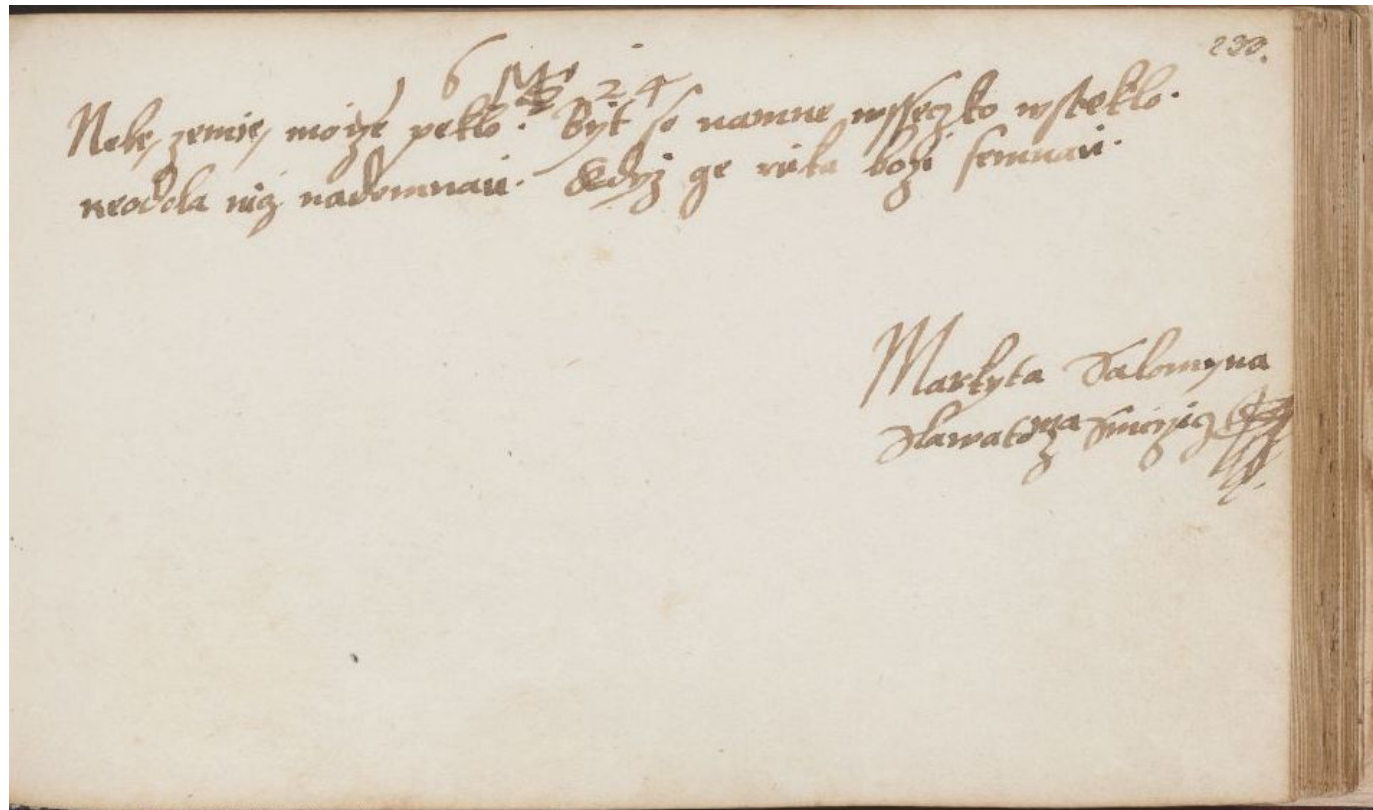 233.
1 6 M 24
Nebe, zemie, možie peklo. Byt se namne wsseczko wsteklo.
neodola nicz nademnau. Kdyz ge ruka bozi semnau.
Markyta Salomyna
Slawatowa Smirzicz